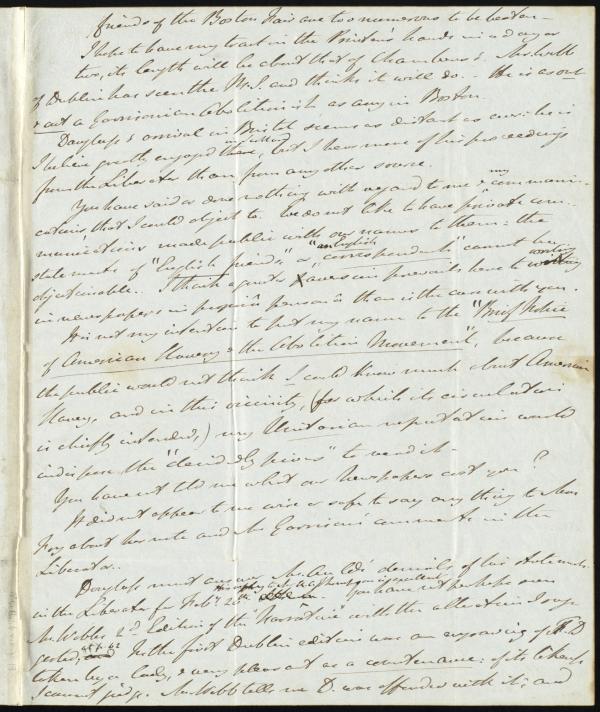 friends of the Boston Fair are too numerous to be beaten—
I hope to have my tract in the Printer's hands in a day or
two, its length will be about that of Chambers's. Mr. Webb
of Dublin has seen the M.S. and thinks it will do.— He is as out
& out a Garrisonian Abolitionist as any in Boston.
Douglass's arrival in Bristol seems as distant as ever: he is
I believe greatly enjoyed there, but I hear more of his proceedings
from the Liberator than from any other source.
You have said or done nothing with regard to me & my communi-
cations that I could object to. We do not like to have private com-
munications made public with our names to them: the
statements of "English friends," or "an English correspondent" cannot be
objectionable. I think a greater aversion prevails here to
in newspapers in propriâ personâ than is the case with you.
It is not my intention to put my name to the "Brief Notice
of American Slavery & the Abolition Movement", because
the public would not think I could know much about American
Slavery, and in this vicinity, (for which its circulation
is chiefly intended,) my Unitarian reputation would
indispose the "decidedly pious" to read it.
You have not told me what our Newspapers cost you?
It did not appear to me wise or safe to say any thing to Miss
about her note and Mr Garrison's comments in the
Liberator.
Douglass must answer Mr. denials of his statements
in the Liberator for Feby 20th. You have not perhaps seen
Mr Webb's 2d Edition of the "Narrative" with the alteration I sug-
gested, In the first Dublin edition was an engraving of F. D
taken by a lady, & very pleasant as a countenance: of its likeness
I cannot judge. Mr Webb tells me D. was offended with it; and